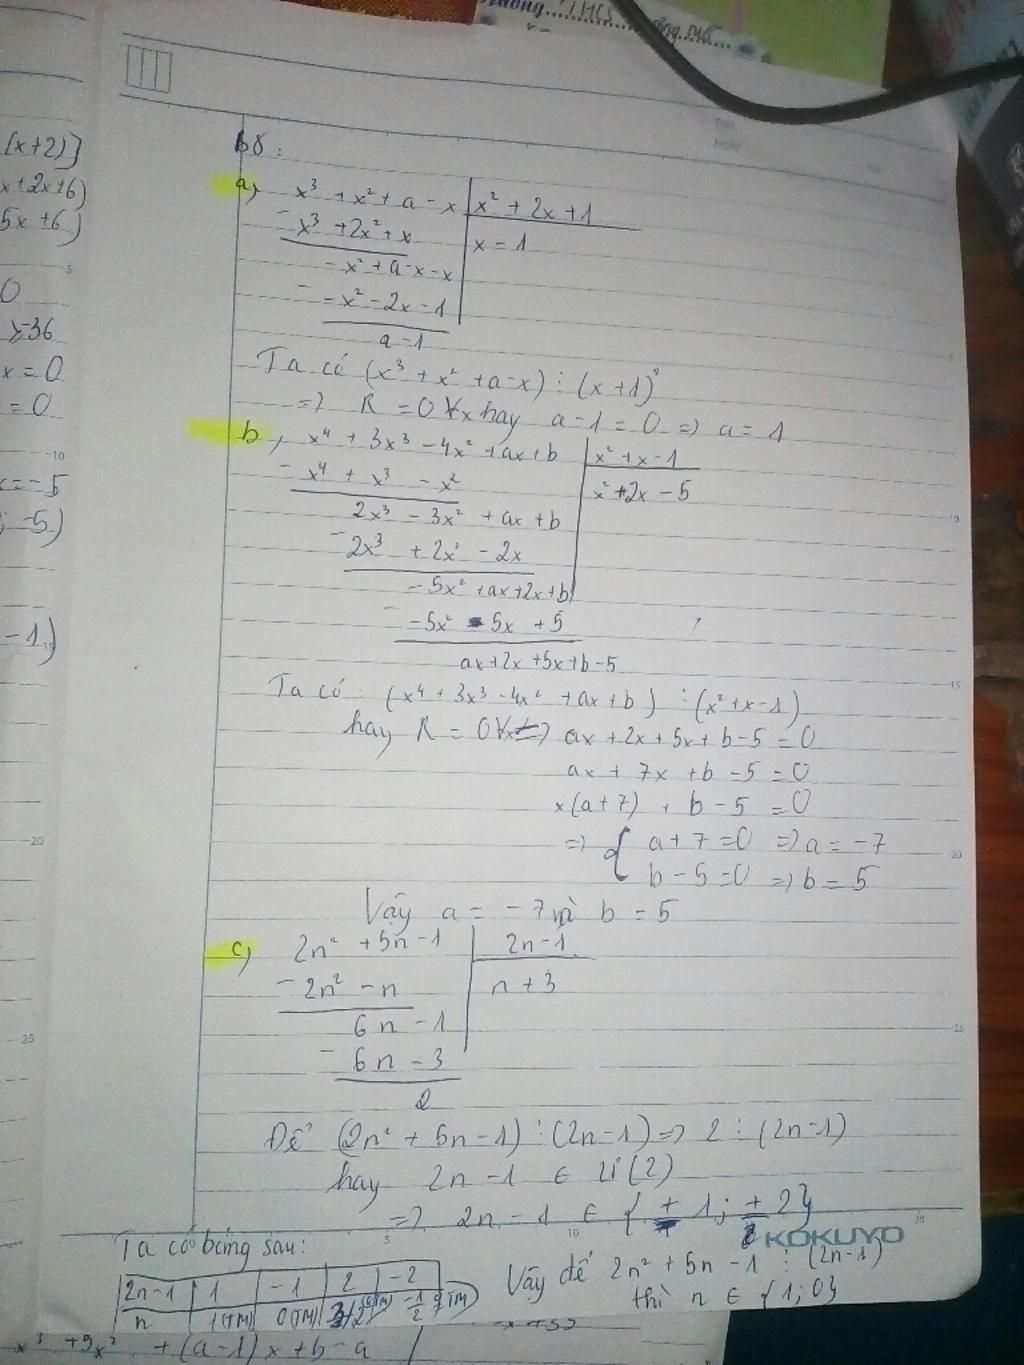 [x+2)]
x+2x+6)
5x+6)
0
≥-36
x=0
=0
x=-5
; -5)
-1)
b8:
a, x³ + x² + a - x | x² + 2x + 1
- x³ + 2x² + x | x - 1
- x² + a - x - x
- - x² - 2x - 1
a - 1
Ta có (x³ + x² + a - x) ⋮ (x + 1)²
=> R = 0 ∀x hay a - 1 = 0 => a = 1
b, x⁴ + 3x³ - 4x² + ax + b | x² + x - 1
- x⁴ + x³ - x² | x² + 2x - 5
2x³ - 3x² + ax + b
- 2x³ + 2x² - 2x
- 5x² + ax + 2x + b
- - 5x² - 5x + 5
ax + 2x + 5x + b - 5
Ta có: (x⁴ + 3x³ - 4x² + ax + b) ⋮ (x² + x - 1)
hay R = 0 ∀x => ax + 2x + 5x + b - 5 = 0
ax + 7x + b - 5 = 0
x(a + 7) + b - 5 = 0
=> { a + 7 = 0 => a = -7
b - 5 = 0 => b = 5
Vậy a = -7 và b = 5
c, 2n² + 5n - 1 | 2n - 1
- 2n² - n | n + 3
6n - 1
- 6n - 3
2
Để (2n² + 5n - 1) ⋮ (2n - 1) => 2 ⋮ (2n - 1)
hay 2n - 1 ∈ Ư(2)
=> 2n - 1 ∈ { ± 1; ± 2}
KOKUYO
Ta có bảng sau:
2n-1 | 1 | -1 | 2 | -2
n | 1(TM) | 0(TM)
Vậy để 2n² + 5n - 1 ⋮ (2n - 1)
thì n ∈ {1; 0}
x³ + 3x² + (a-1)x + b - a